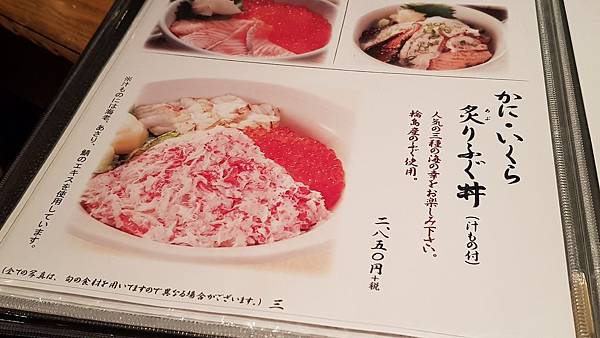 かに・いくら
炙りふぐ丼(汁もの付)
あぶ
人気の三種の海の幸をお楽しみ下さい。
輪島産のふぐ使用。
二、八五〇円+税
※汁ものには海老、あさり、鯖のエキスを使用しています。
(全ての写真は、旬の食材を用いてますので異なる場合がございます。) 三